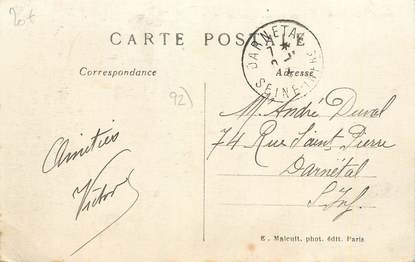 20t
CARTE POSTALE
Correspondance
Adresse
DARNETAL
SEINE INFRE
92)
Mr André Duval
74 Rue Saint Pierre
Darnétal
S. Inf.
Amitiés
Victor
E. Malcuit, phot. édit. Paris